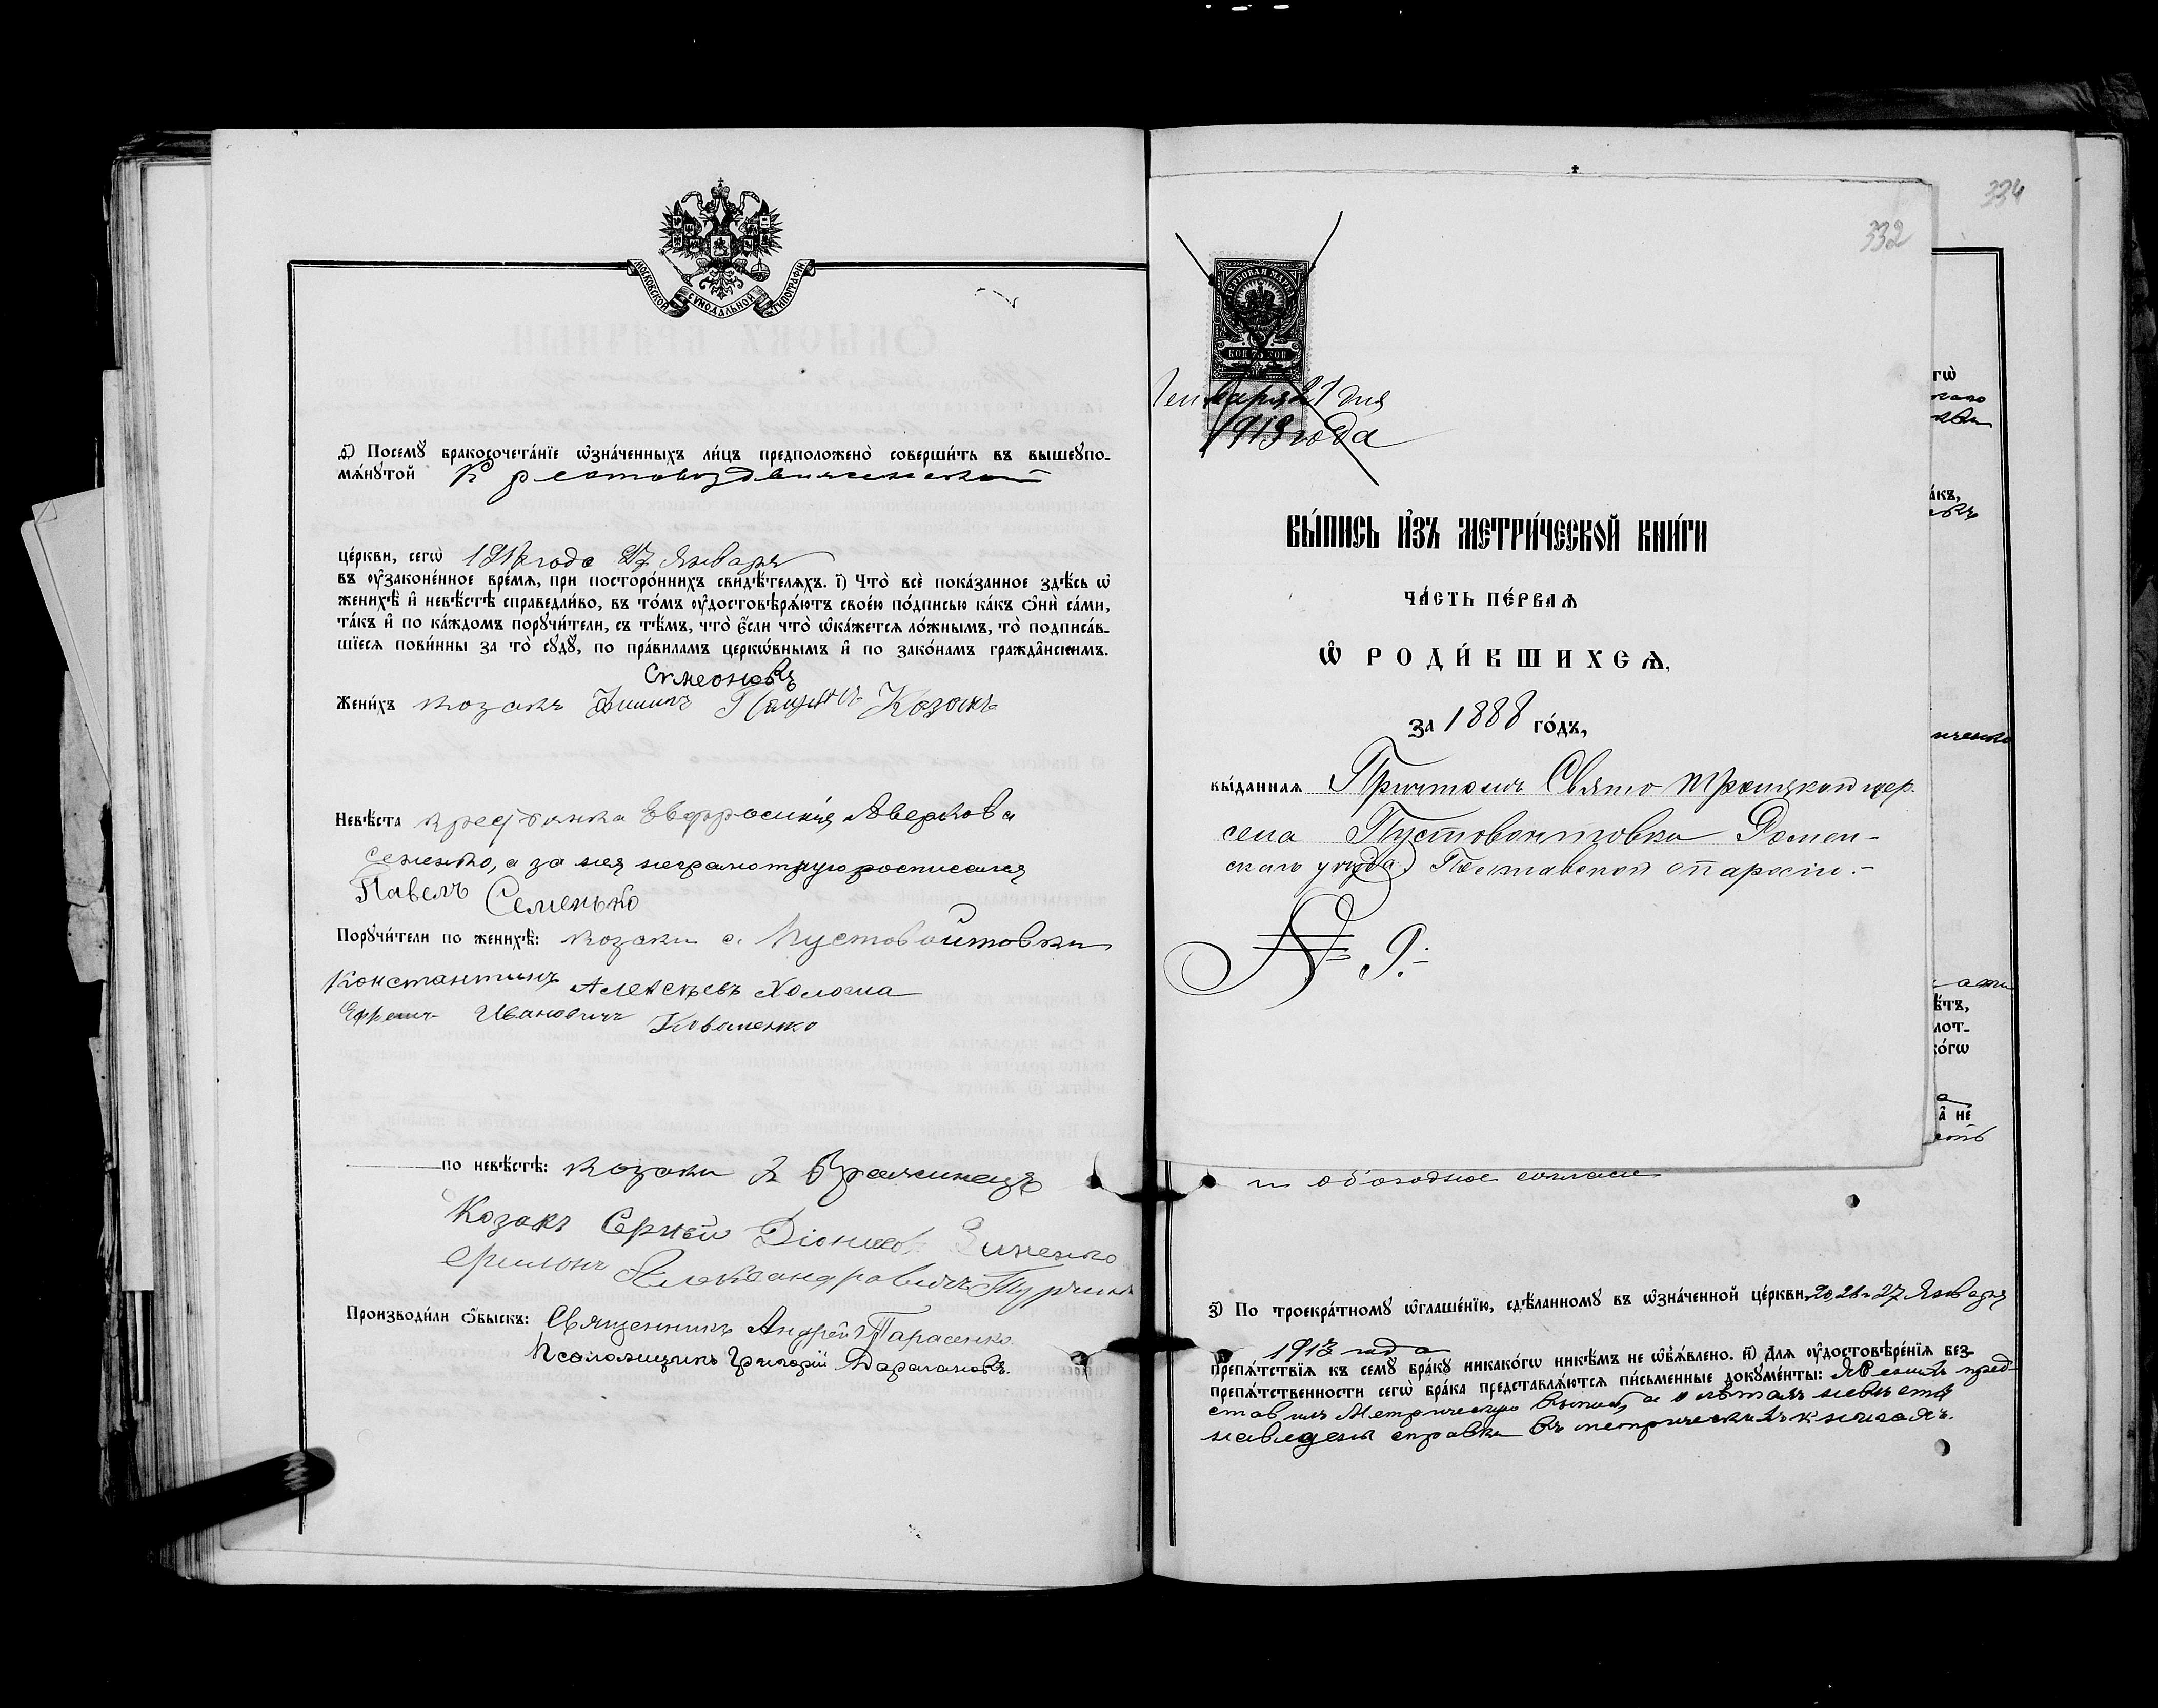 МОСКОВСКОЙ СѴНОДАЛЬНОЙ ТИПОГРАФІИ
д҃і) Посемꙋ̀ бракосочета́нїе ѡ҆зна́ченныхъ ли́цъ предположено̀ соверши́ть въ вышеꙋпо-
мѧ́нꙋтой Крестовоздвиженской
це́ркви, сегѡ̀ года 27 Января
въ ᲂу҆законе́нное вре́мѧ, при посторо́ннихъ свидѣ́телѧхъ. і҃) Что̀ всѐ пока́занное здѣ́сь ѡ҆
женихѣ̀ и҆ невѣ́стѣ справедли́во, въ то́мъ ᲂу҆достовѣрѧ́ютъ свое́ю по́дписью ка́къ ѻ҆нѝ са́ми,
та́къ и҆ по ка́ждомъ порꙋчи́тели, съ тѣ́мъ, что̀ є҆́сли что̀ ѡ҆ка́жетсѧ ло́жнымъ, то̀ подписа́в-
шїесѧ пови́нны за то̀ сꙋдꙋ̀, по пра́виламъ церко́внымъ и҆ по зако́намъ гражда̂нскимъ.
Симеоновъ
Жени́хъ козакъ Козокъ
Невѣ́ста Евфросинія Аверкова
Семенко, а за нея неграмотную росписался
Павелъ Семенько
Порꙋчи́тели по женихѣ̀: козаки с. Пустовойтовки
Константинъ Алексѣевъ Холоша
Ефремъ Ивановичъ Коваленко
по невѣ́стѣ: козаки
Козакъ Сергѣй Зименко
Александровичъ
Производи́ли ѻ҆́быскъ: Священникъ Андрей Тарасенко.
Псаломщикъ Григорій Дарагановъ.
334
332
ГЕРБОВАЯ МАРКА
КОП 75 КОП
Генваря 21 дня
1913 года
ВЫ́ПИСЬ И҆ЗЪ МЕТРИ́ЧЕСКОЙ КНИ́ГИ
ЧА́СТЬ ПЕ́РВАѦ
Ѽ РОДИ́ВШИХСѦ,
за 1888 го́дъ,
вы́даннаѧ Причтомъ Свято Троицкой цер.
села Пустовойтовки Ромен-
скаго уѣзда Полтавской епархіи.-
гѡ̀
а́къ,
ѣ́тъ,
лот-
ко́гѡ
а҆ не́
и обоюдное согласіе
з҃) По троекра́тномꙋ ѡ҆глаше́нїю, сдѣ́ланномꙋ въ ѡ҆зна́ченной це́ркви 20, 26 и 27 Января
1913 года
препѧ́тствїѧ къ семꙋ̀ бра́кꙋ никако́гѡ никѣ́мъ не ѡ҆б̾ѧ́влено. и҃) Длѧ ᲂу҆достовѣре́нїѧ без-
препѧ́тственности сегѡ̀ бра́ка представлѧ́ютсѧ пи́сьменные докꙋме́нты: Женихъ пред-
ставилъ Метрическую выпись, а о лѣтахъ невѣсты
наведены справки въ метрическихъ книгахъ.